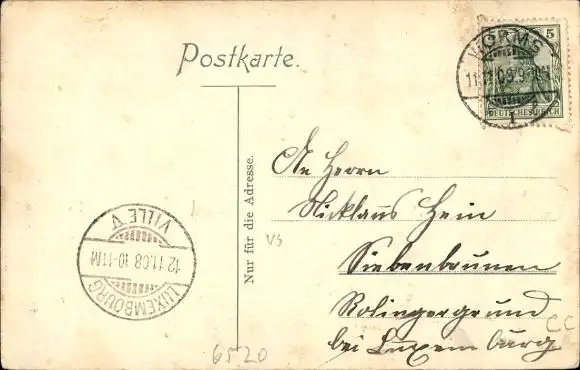 Postkarte.
5
WORMS
11.11.08 9-10
1
DEUTSCHES REICH
An Herrn
Nicklaus Hein
Siebenbrunen
Rolingergrund
bei Luxemburg
Nur für die Adresse.
VS
LUXEMBOURG
12.11.08 10-11M
VILLE V
6520
CC